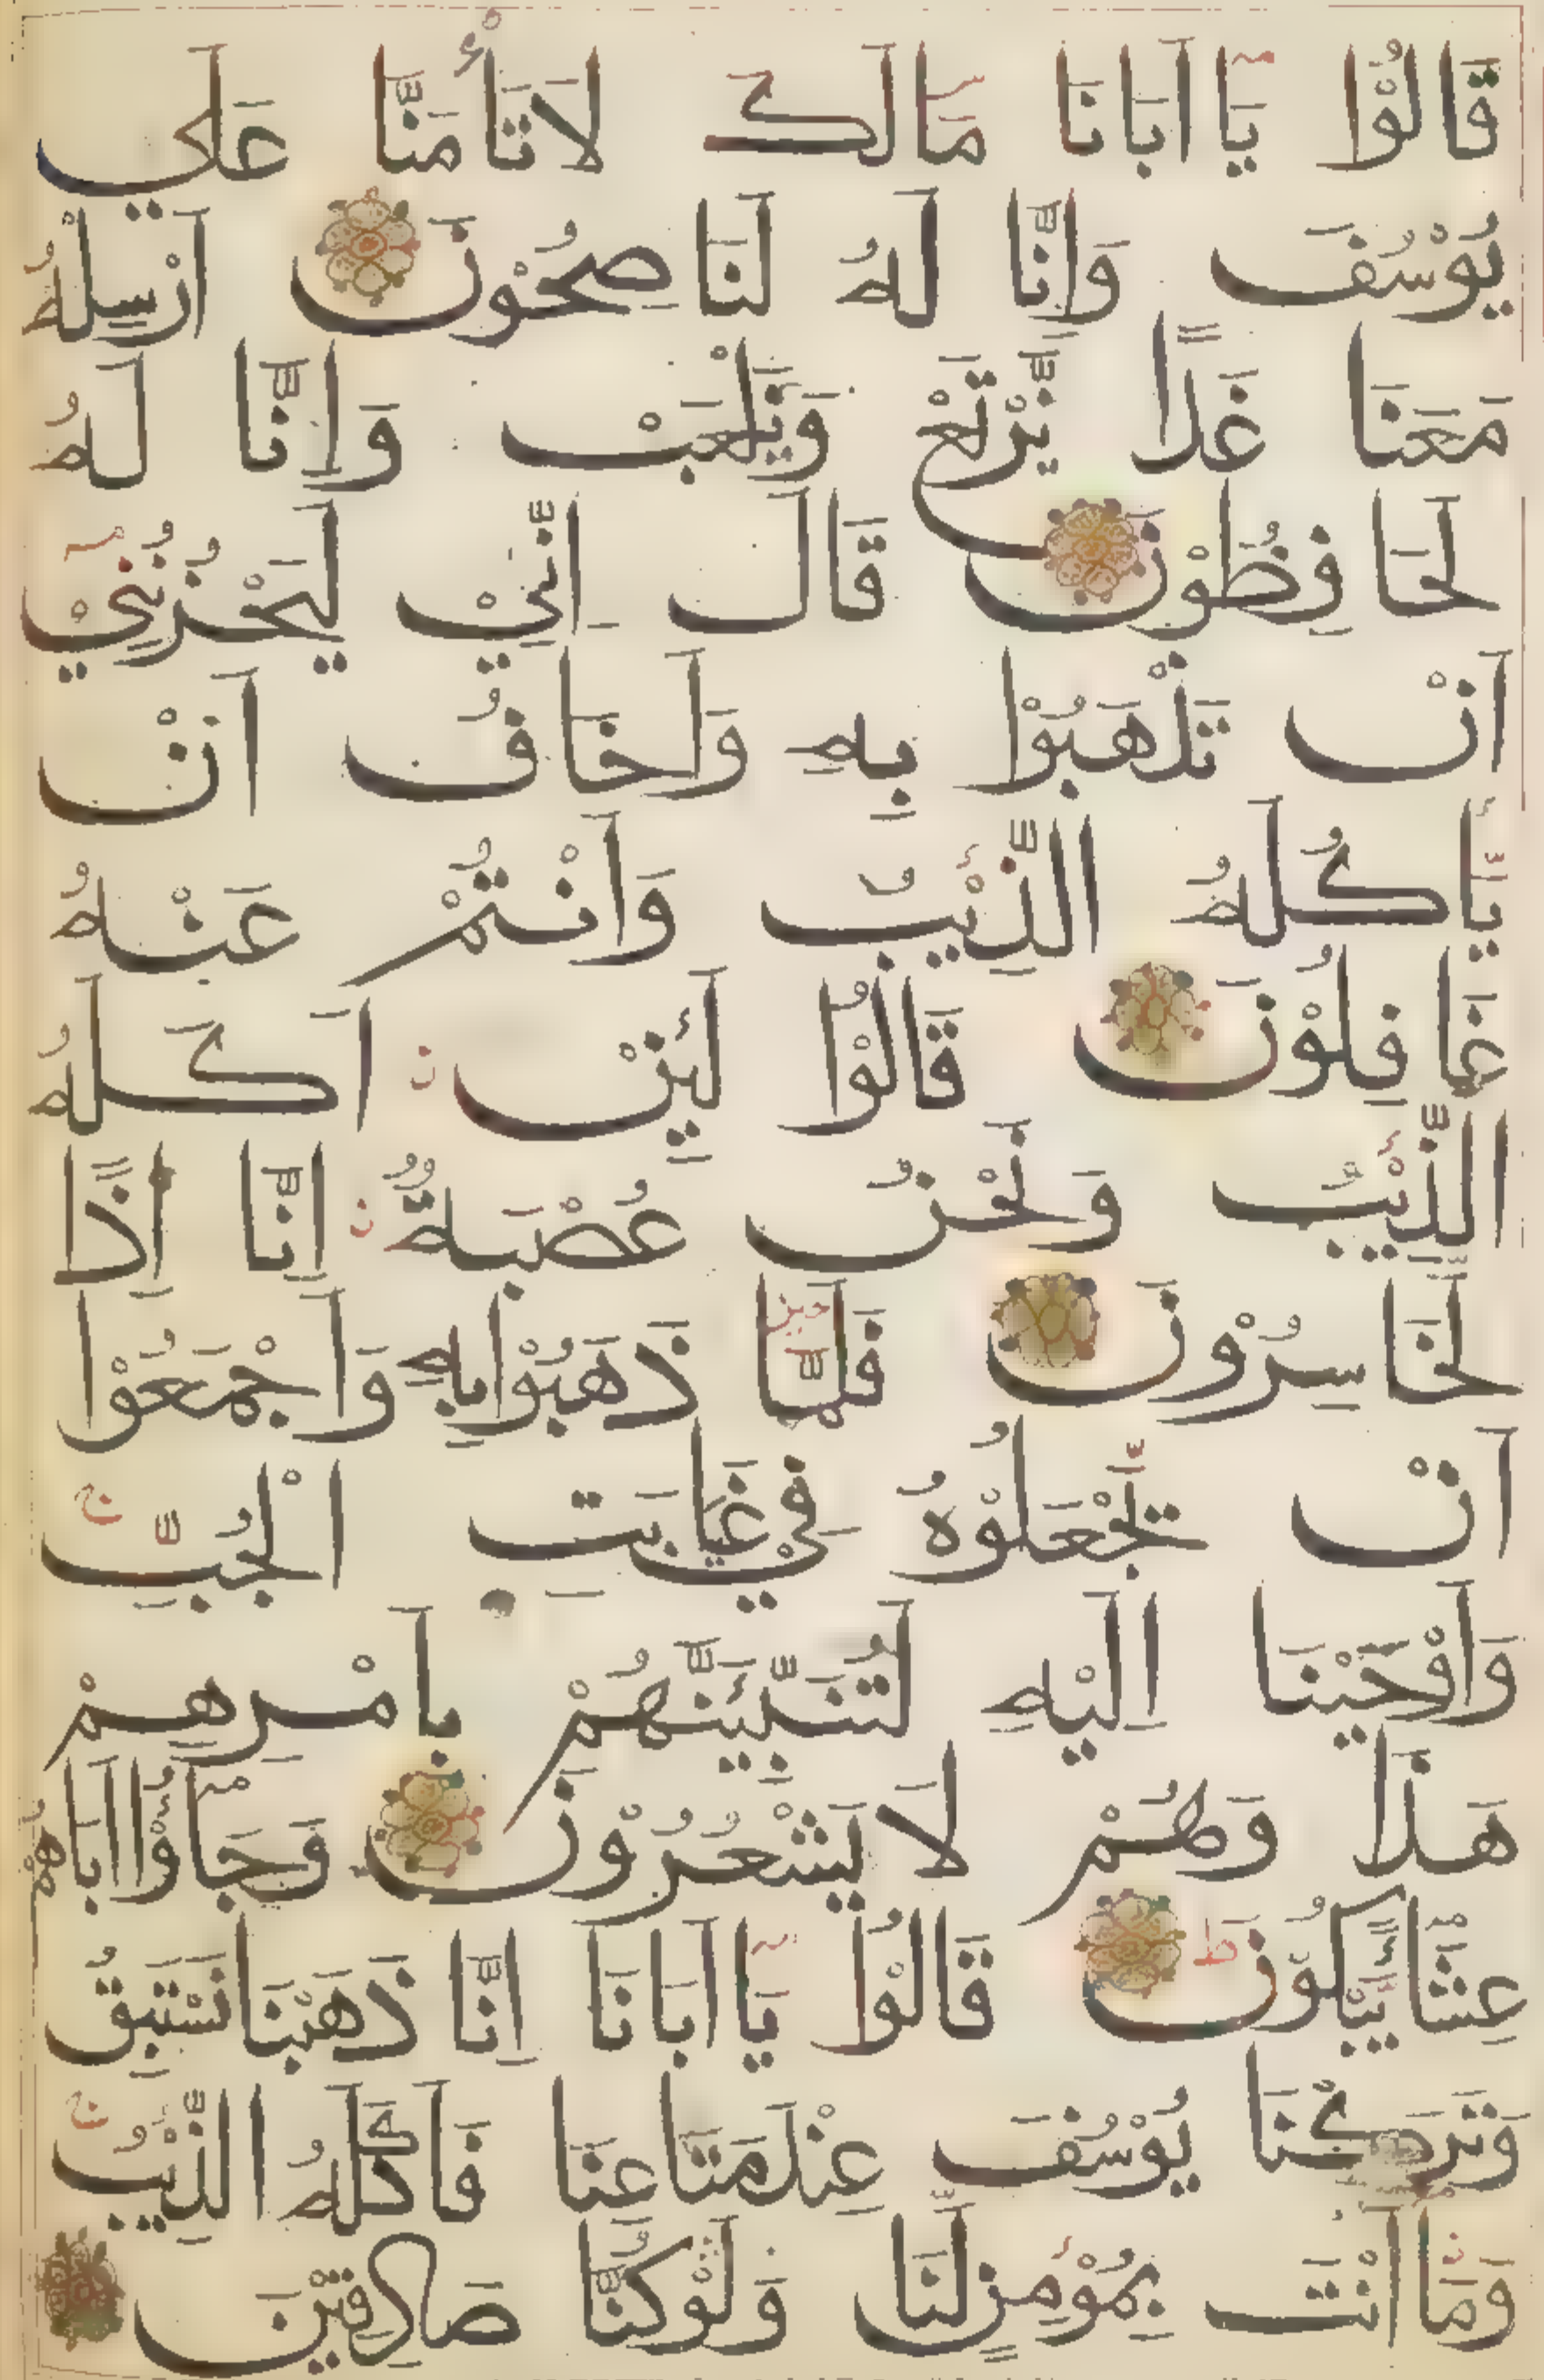 قَالُوْا يَا اَبَانَا مَالَكَ لَا تَأْمَنَّا عَلَي
يُوْسُفَ وَاِنَّا لَهُ لَنَاصِحُوْنَ اَرْسِلْهُ
مَعَنَا غَدًا يَّرْتَعْ وَيَلْعَبْ وَاِنَّا لَهُ
لَحَافِظُوْنَ قَالَ اِنِّيْ لَيَحْزُنُنِيْ
اَنْ تَذْهَبُوْا بِهِ وَاَخَافُ اَنْ
يَّاكُلَهُ الذِّئْيبُ وَاَنْتُمْ عَنْهُ
غَافِلُوْنَ قَالُوْا لَئِنْ اَكَلَهُ
الذِّئْيبُ وَنَحْنُ عُصْبَةٌ اِنَّا اِذًا
لَّخَاسِرُوْنَ فَلَمَّا ذَهَبُوْا بِهِ وَاَجْمَعُوْا
اَنْ يَّجْعَلُوْهُ فِيْ غَيَابَتِ الْجُبِّ
وَاَوْحَيْنَا اِلَيْهِ لَتُنَبِّئَنَّهُمْ بِاَمْرِهِمْ
هَذَا وَهُمْ لَا يَشْعُرُوْنَ وَجَاؤُاابَاهُمْ
عِشَاءً يَّبْكُوْنَ قَالُوْا يَا اَبَانَا اِنَّا ذَهَبْنَا نَسْتَبِقُ
وَتَرَكْنَا يُوْسُفَ عِنْدَ مَتَاعِنَا فَاَكَلَهُ الذِّئْيبُ
وَمَا اَنْتَ بِمُؤْمِنٍ لَّنَا وَلَوْ كُنَّا صَادِقِيْنَ